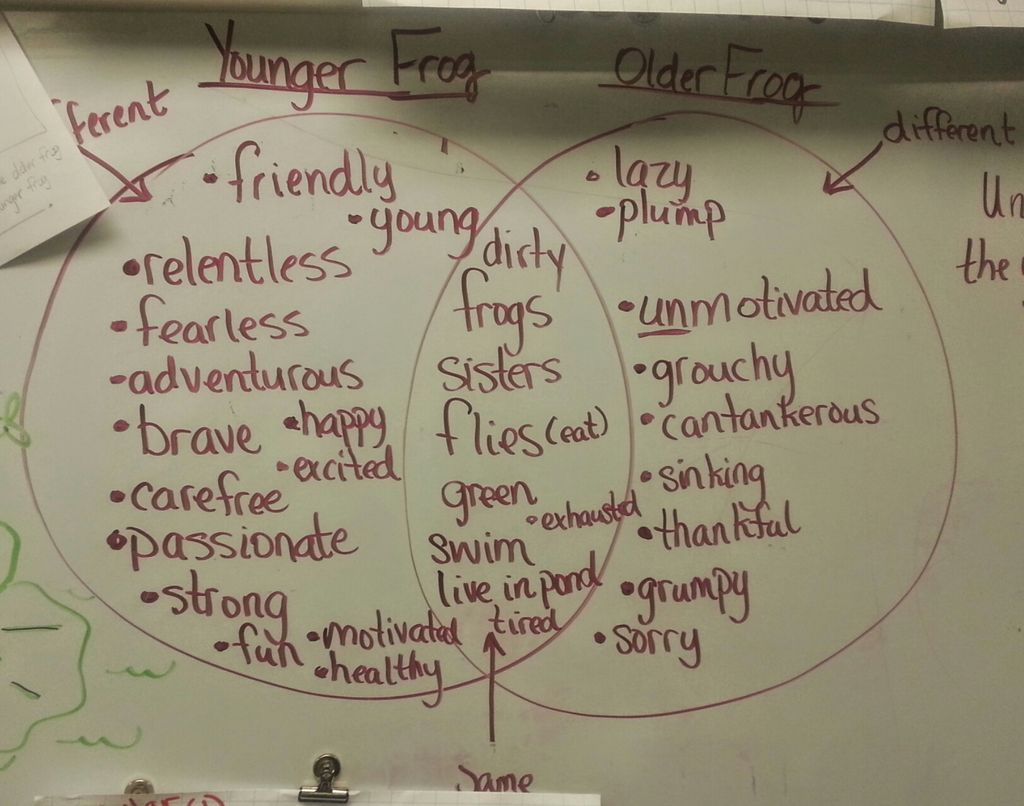 Younger Frog
Older Frog
different
• friendly
• young
• relentless
• fearless
- adventurous
• brave
• happy
• excited
• carefree
• passionate
• strong
• fun
• motivated
• healthy
dirty
frogs
sisters
flies (eat)
green
• exhausted
swim
live in pond
tired
• lazy
• plump
• unmotivated
• grouchy
• cantankerous
• sinking
• thankful
• grumpy
• sorry
the
Same
older frog
frog